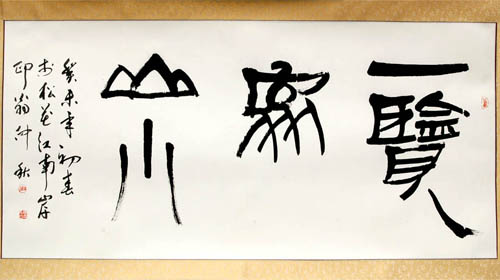 一覽
眾
山小
癸未年初春
於松花江南岸
翁仲秋